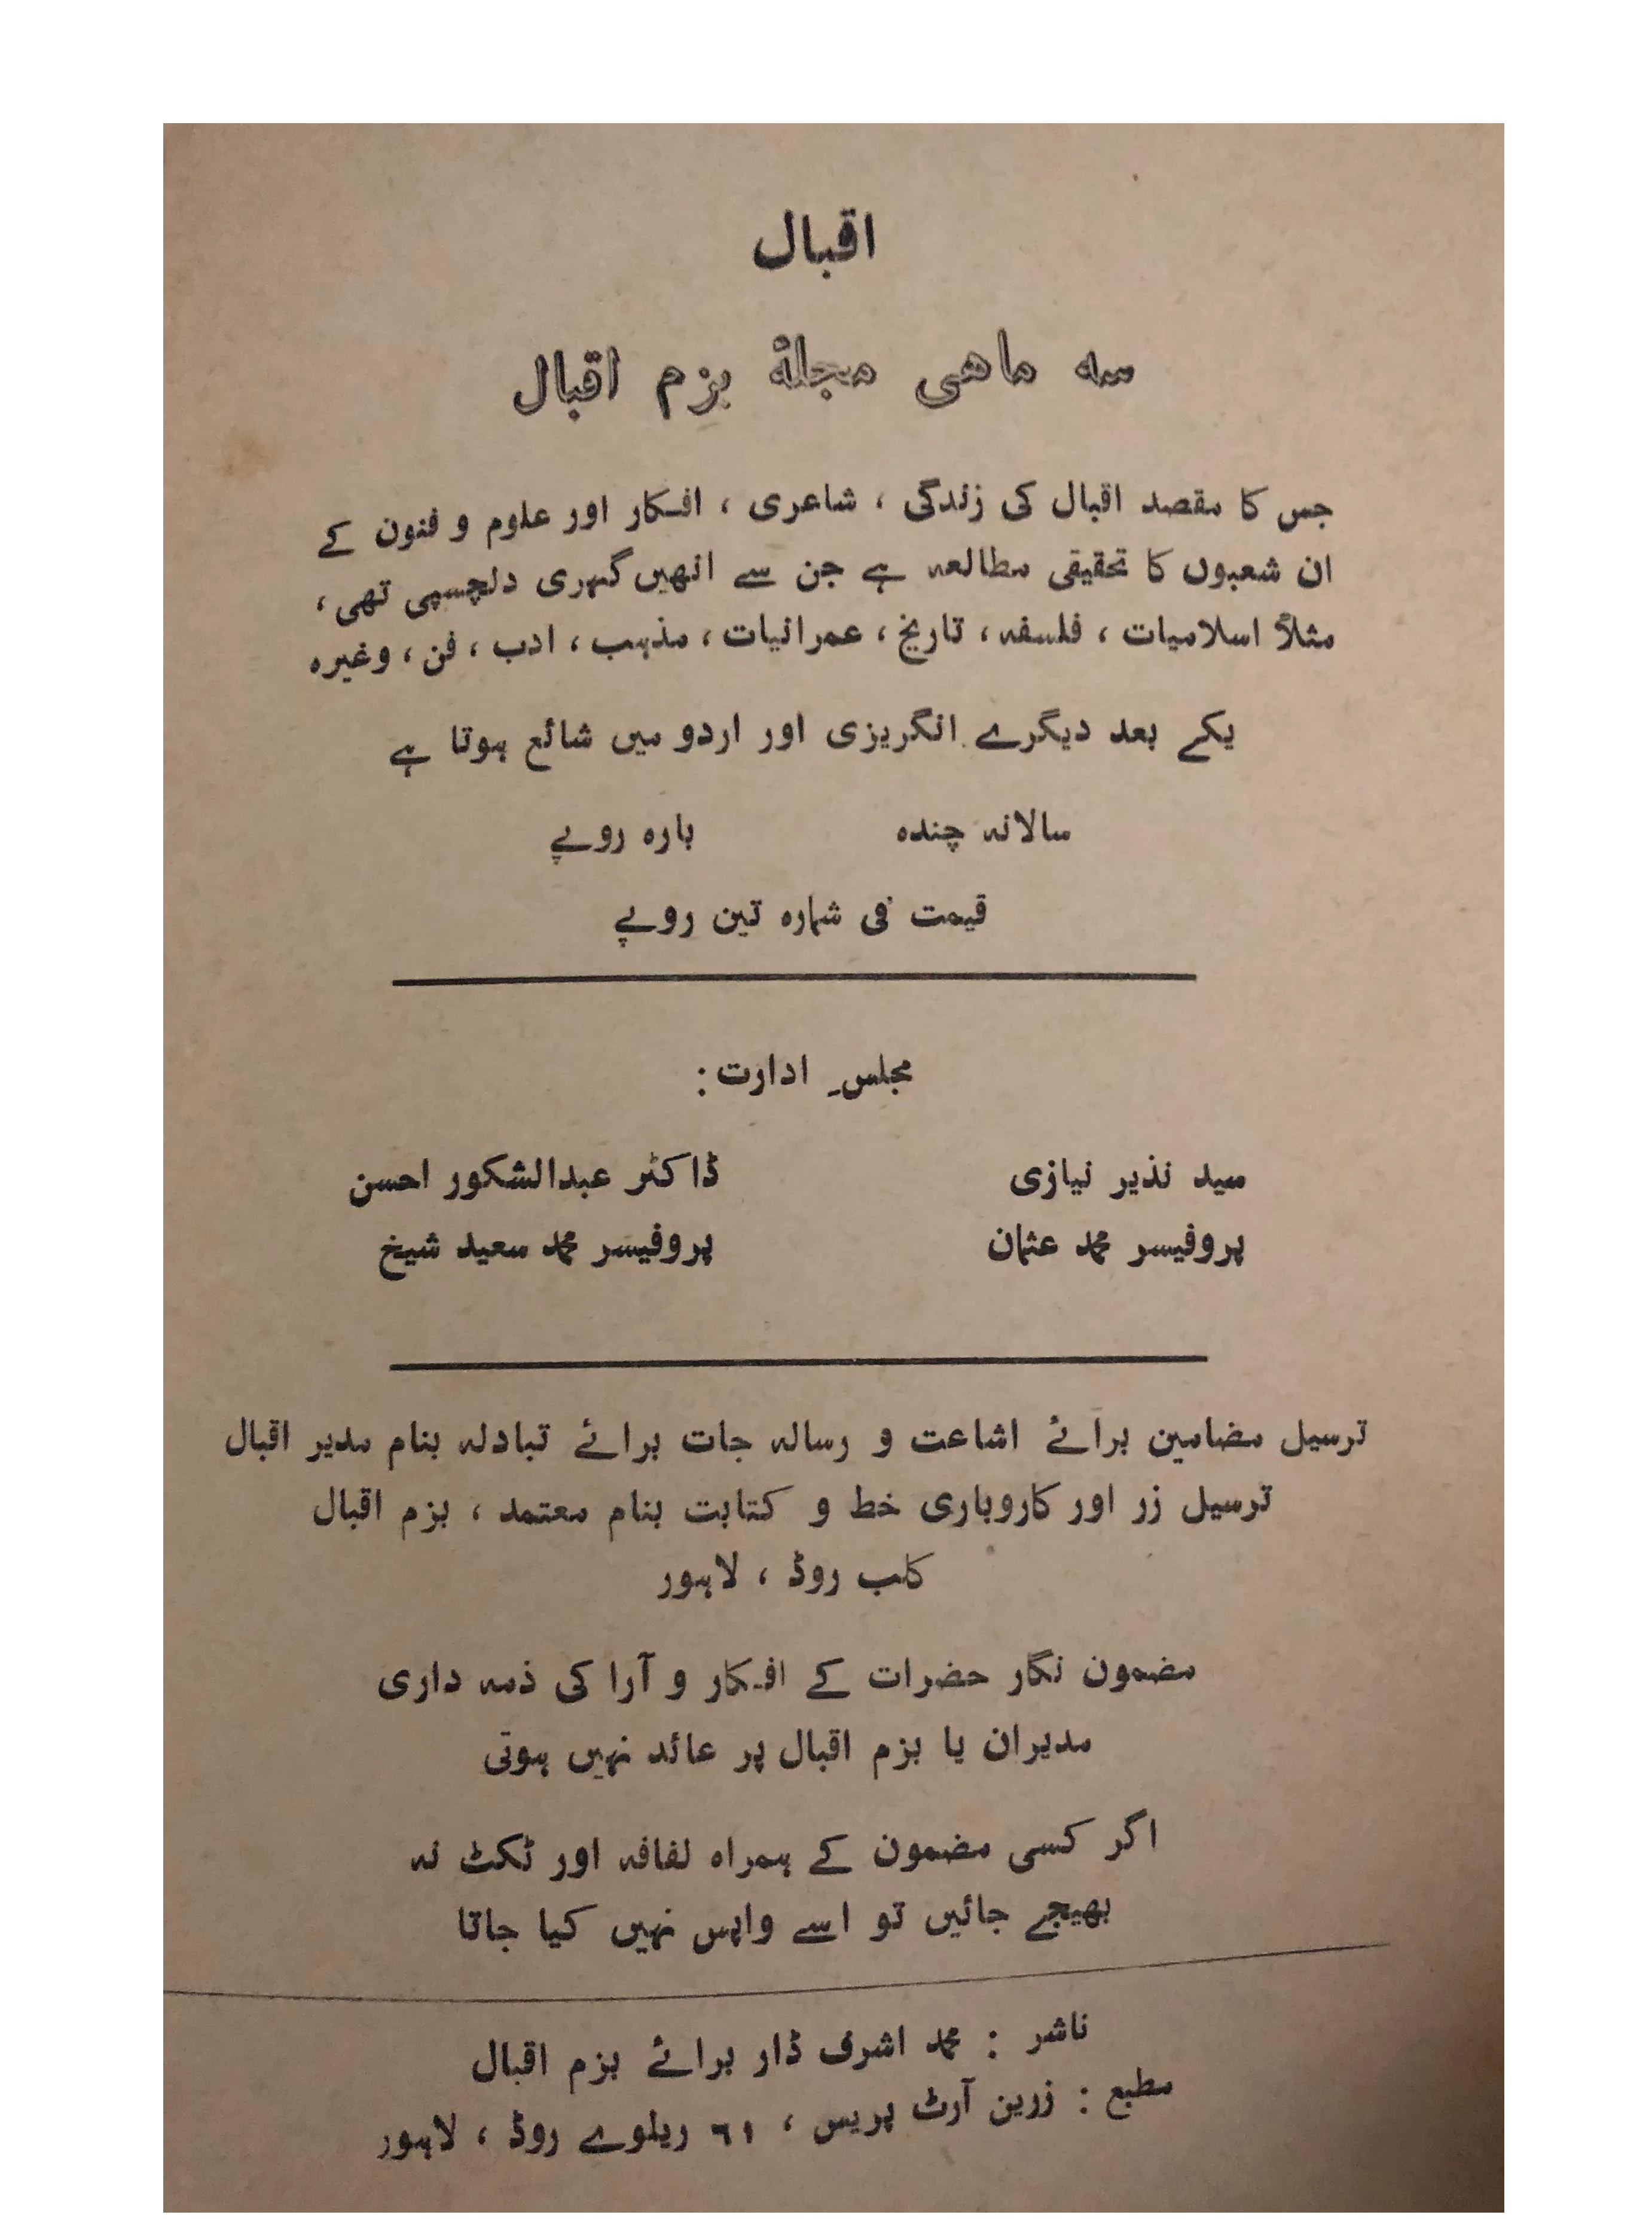 اقبال
سہ ماهی مجلۂ بزم اقبال
جس کا مقصد اقبال کی زندگی ، شاعری ، افکار اور علوم و فنون کے
ان شعبوں کا تحقیقی مطالعہ ہے جن سے انھیں گہری دلچسپی تھی ،
مثلاً اسلامیات ، فلسفہ ، تاریخ ، عمرانیات ، مذہب ، ادب ، فن ، وغیرہ
یکے بعد دیگرے انگریزی اور اردو میں شائع ہوتا ہے
سالانہ چندہ بارہ روپے
قیمت فی شمارہ تین روپے
مجلسِ ادارت :
سید نذیر نیازی ڈاکٹر عبدالشکور احسن
پروفیسر محمد عثمان پروفیسر محمد سعید شیخ
ترسیل مضامین برائے اشاعت و رسالہ جات برائے تبادلہ بنام مدیر اقبال
ترسیل زر اور کاروباری خط و کتابت بنام معتمد ، بزم اقبال
کلب روڈ ، لاہور
مضمون نگار حضرات کے افکار و آرا کی ذمہ داری
مدیران یا بزم اقبال پر عائد نہیں ہوتی
اگر کسی مضمون کے ہمراہ لفافہ اور ٹکٹ نہ
بھیجے جائیں تو اسے واپس نہیں کیا جاتا
ناشر : محمد اشرف ڈار برائے بزم اقبال
مطبع : زرین آرٹ پریس ، ٦١ ریلوے روڈ ، لاہور